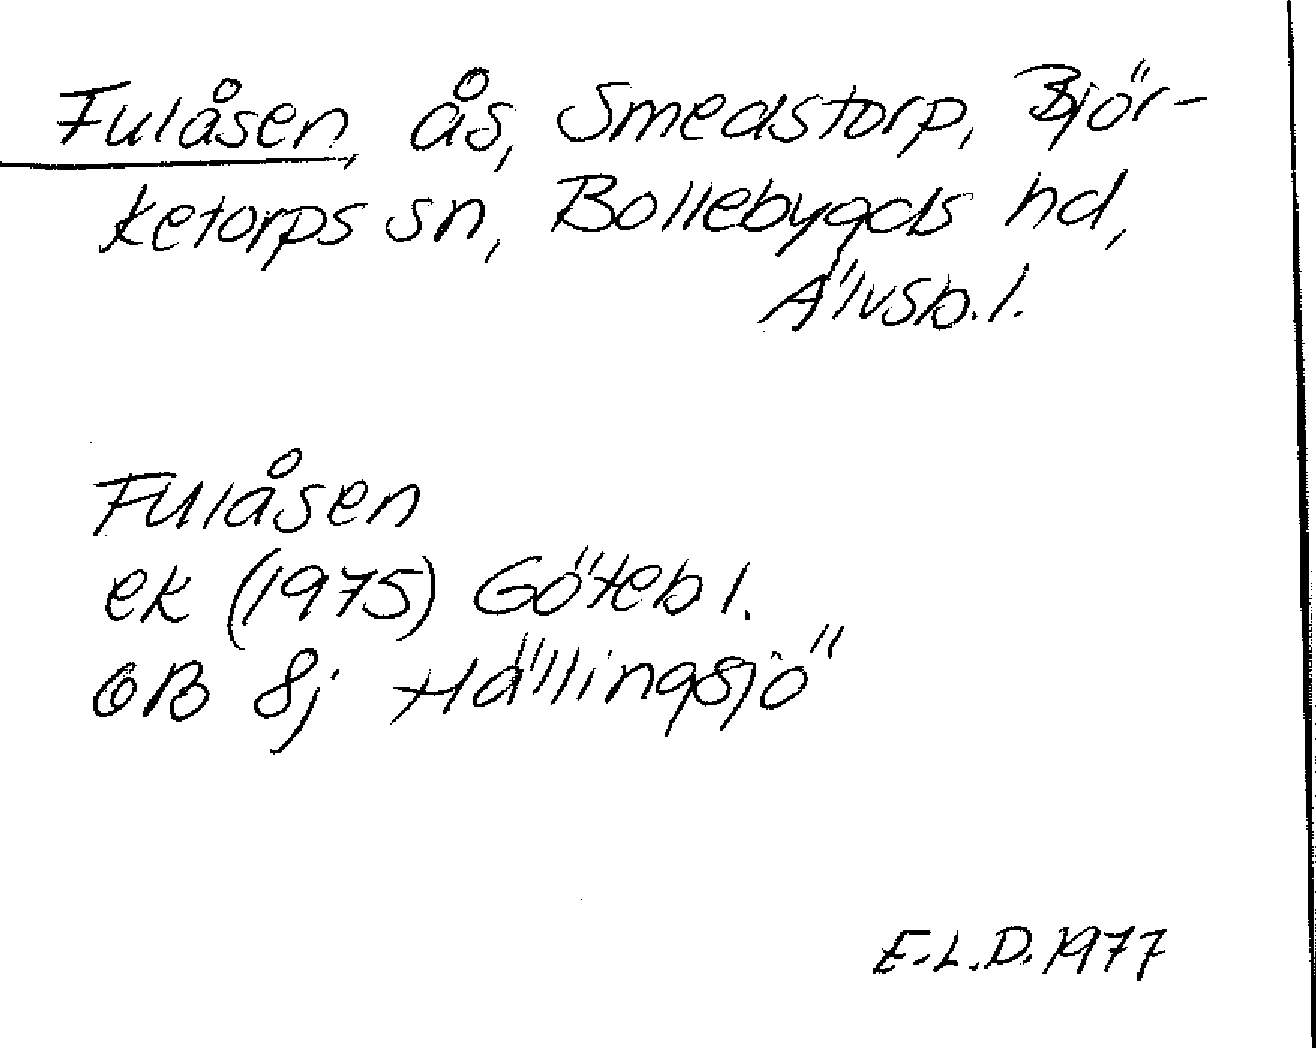 Fulåsen, ås, Smedstorp, Björ-
ketorps sn, Bollebygds hd,
Älvsb.l.
Fulåsen
ek (1975) Göteb l.
6B 8j Hällingsjö
E.L.D. 1977